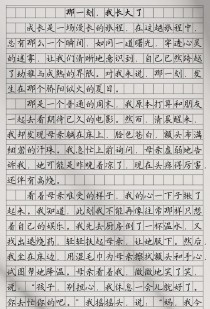 那一刻，我长大了
成长是一场漫长的旅程，在这趟旅程中，
总有那么一个瞬间，如同一道曙光，穿透心灵
的迷雾，让我们清晰地意识到，自己已然跨越
了幼稚与成熟的界限。对我来说，那一刻，发
生在那个骄阳似火的夏日。
那是一个普通的周末，我原本打算和朋友
一起去看期待已久的电影。然而，清晨醒来，
我却发现母亲躺在床上，脸色苍白，额头布满
细密的汗珠。我急忙上前询问，母亲虚弱地告
诉我，她可能是昨晚着凉了，现在头疼得厉害，
还伴有高烧。
看着母亲难受的样子，我的心一下子揪了
起来。我知道，此刻我不能再像往常那样只想
着自己的娱乐。我先去厨房倒了一杯温水，又
找出退烧药，轻轻扶起母亲，让她服下。然后，
我坐在床边，用湿毛巾为母亲擦拭额头和手心，
试图帮她降温。母亲看着我，微微地笑了笑，
说：“孩子，别担心，我休息一会儿就好了，
你去忙你的吧。”我摇摇头，说：“妈，我今